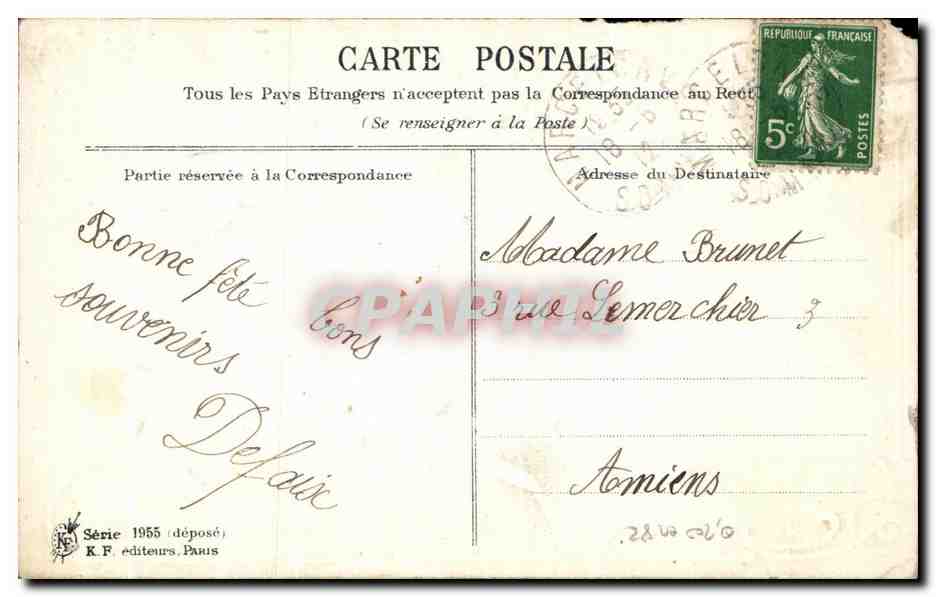 CARTE POSTALE
Tous les Pays Etrangers n'acceptent pas la Correspondance au Recto
(Se renseigner à la Poste)
RÉPUBLIQUE FRANÇAISE
5c
POSTES
Partie réservée à la Correspondance
Adresse du Destinataire
Bonne fête bons
souvenirs
Defaix
Madame Brunet
3 rue Lemerchier 3
Amiens
CPAPHIL
KF
Série 1955 (déposé)
K. F. éditeurs, PARIS